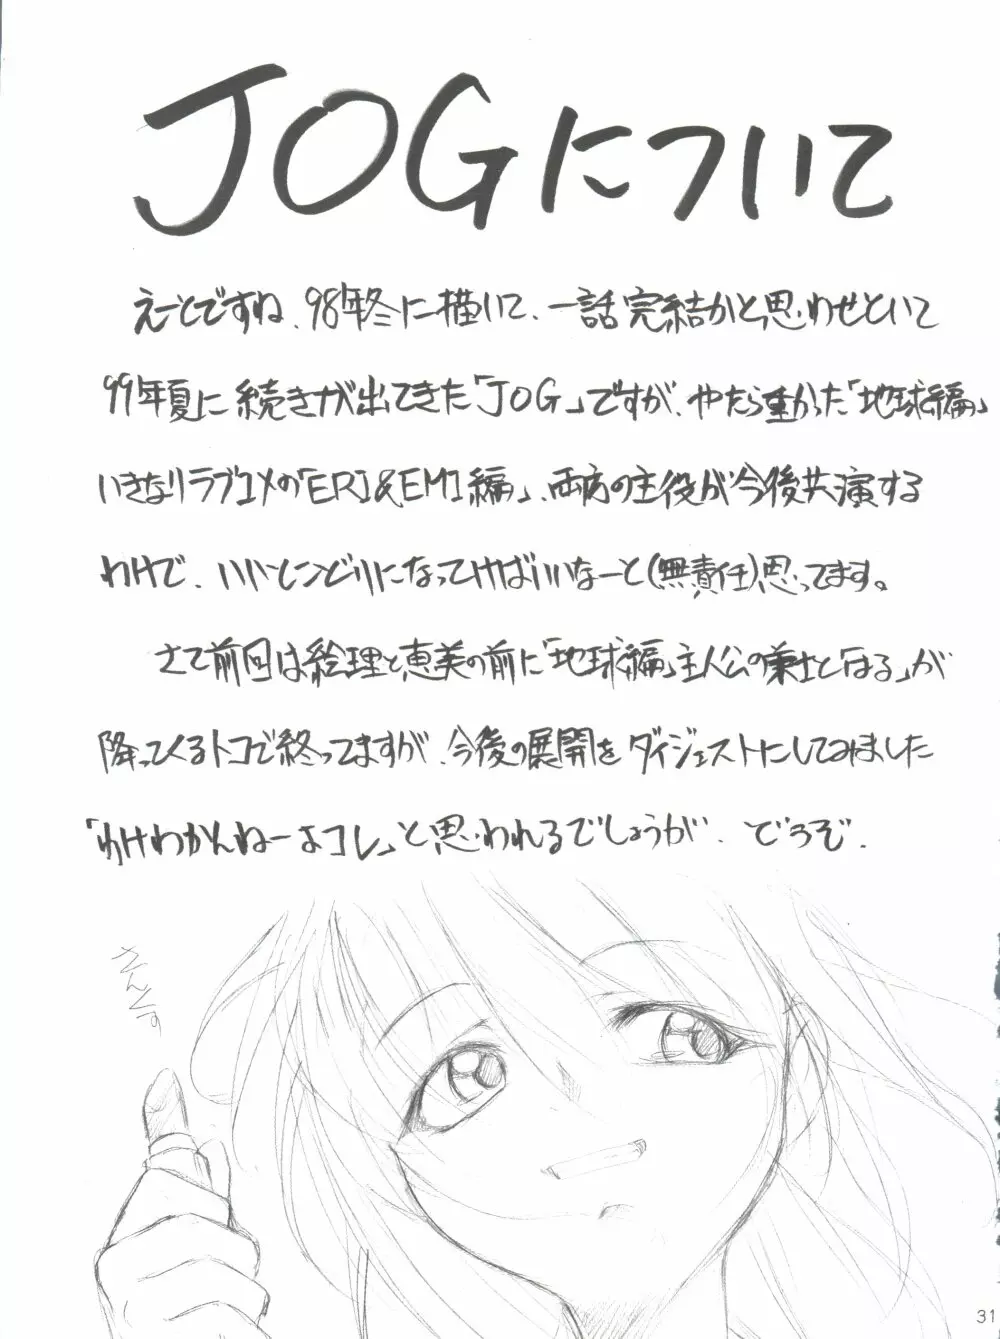 JOGについて
えーとですね、98年冬に描いて、一話完結かと思わせといて
99年夏に続きが出てきた「JOG」ですが、やたら重かった「地球編」
いきなりラブコメの「ERI&EMI編」、両方の主役が今後共演する
わけで、いいとこどりになってけばいいなーと(無責任)思ってます。
さて前回は絵理と恵美の前に「地球編」主人公の兼士と「はる」が
降ってくるトコで終ってますが、今後の展開をダイジェストにしてみました
「わけわかんねーよコレ」と思われるでしょうが、どうぞ.
31